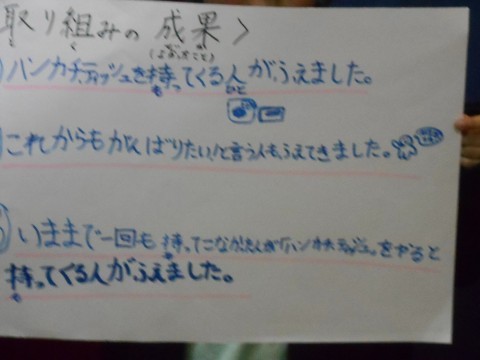 取り組みの成果>
と く せい か
(よかったこと)
ハンカチティッシュを持ってくる人がふえました。
も ひと
これからもがんばりたい!と言う人もふえてきました。
いままで一回も持ってこなかった人が「ハンカチティッシュ」をやると
も
持ってくる人がふえました。
も